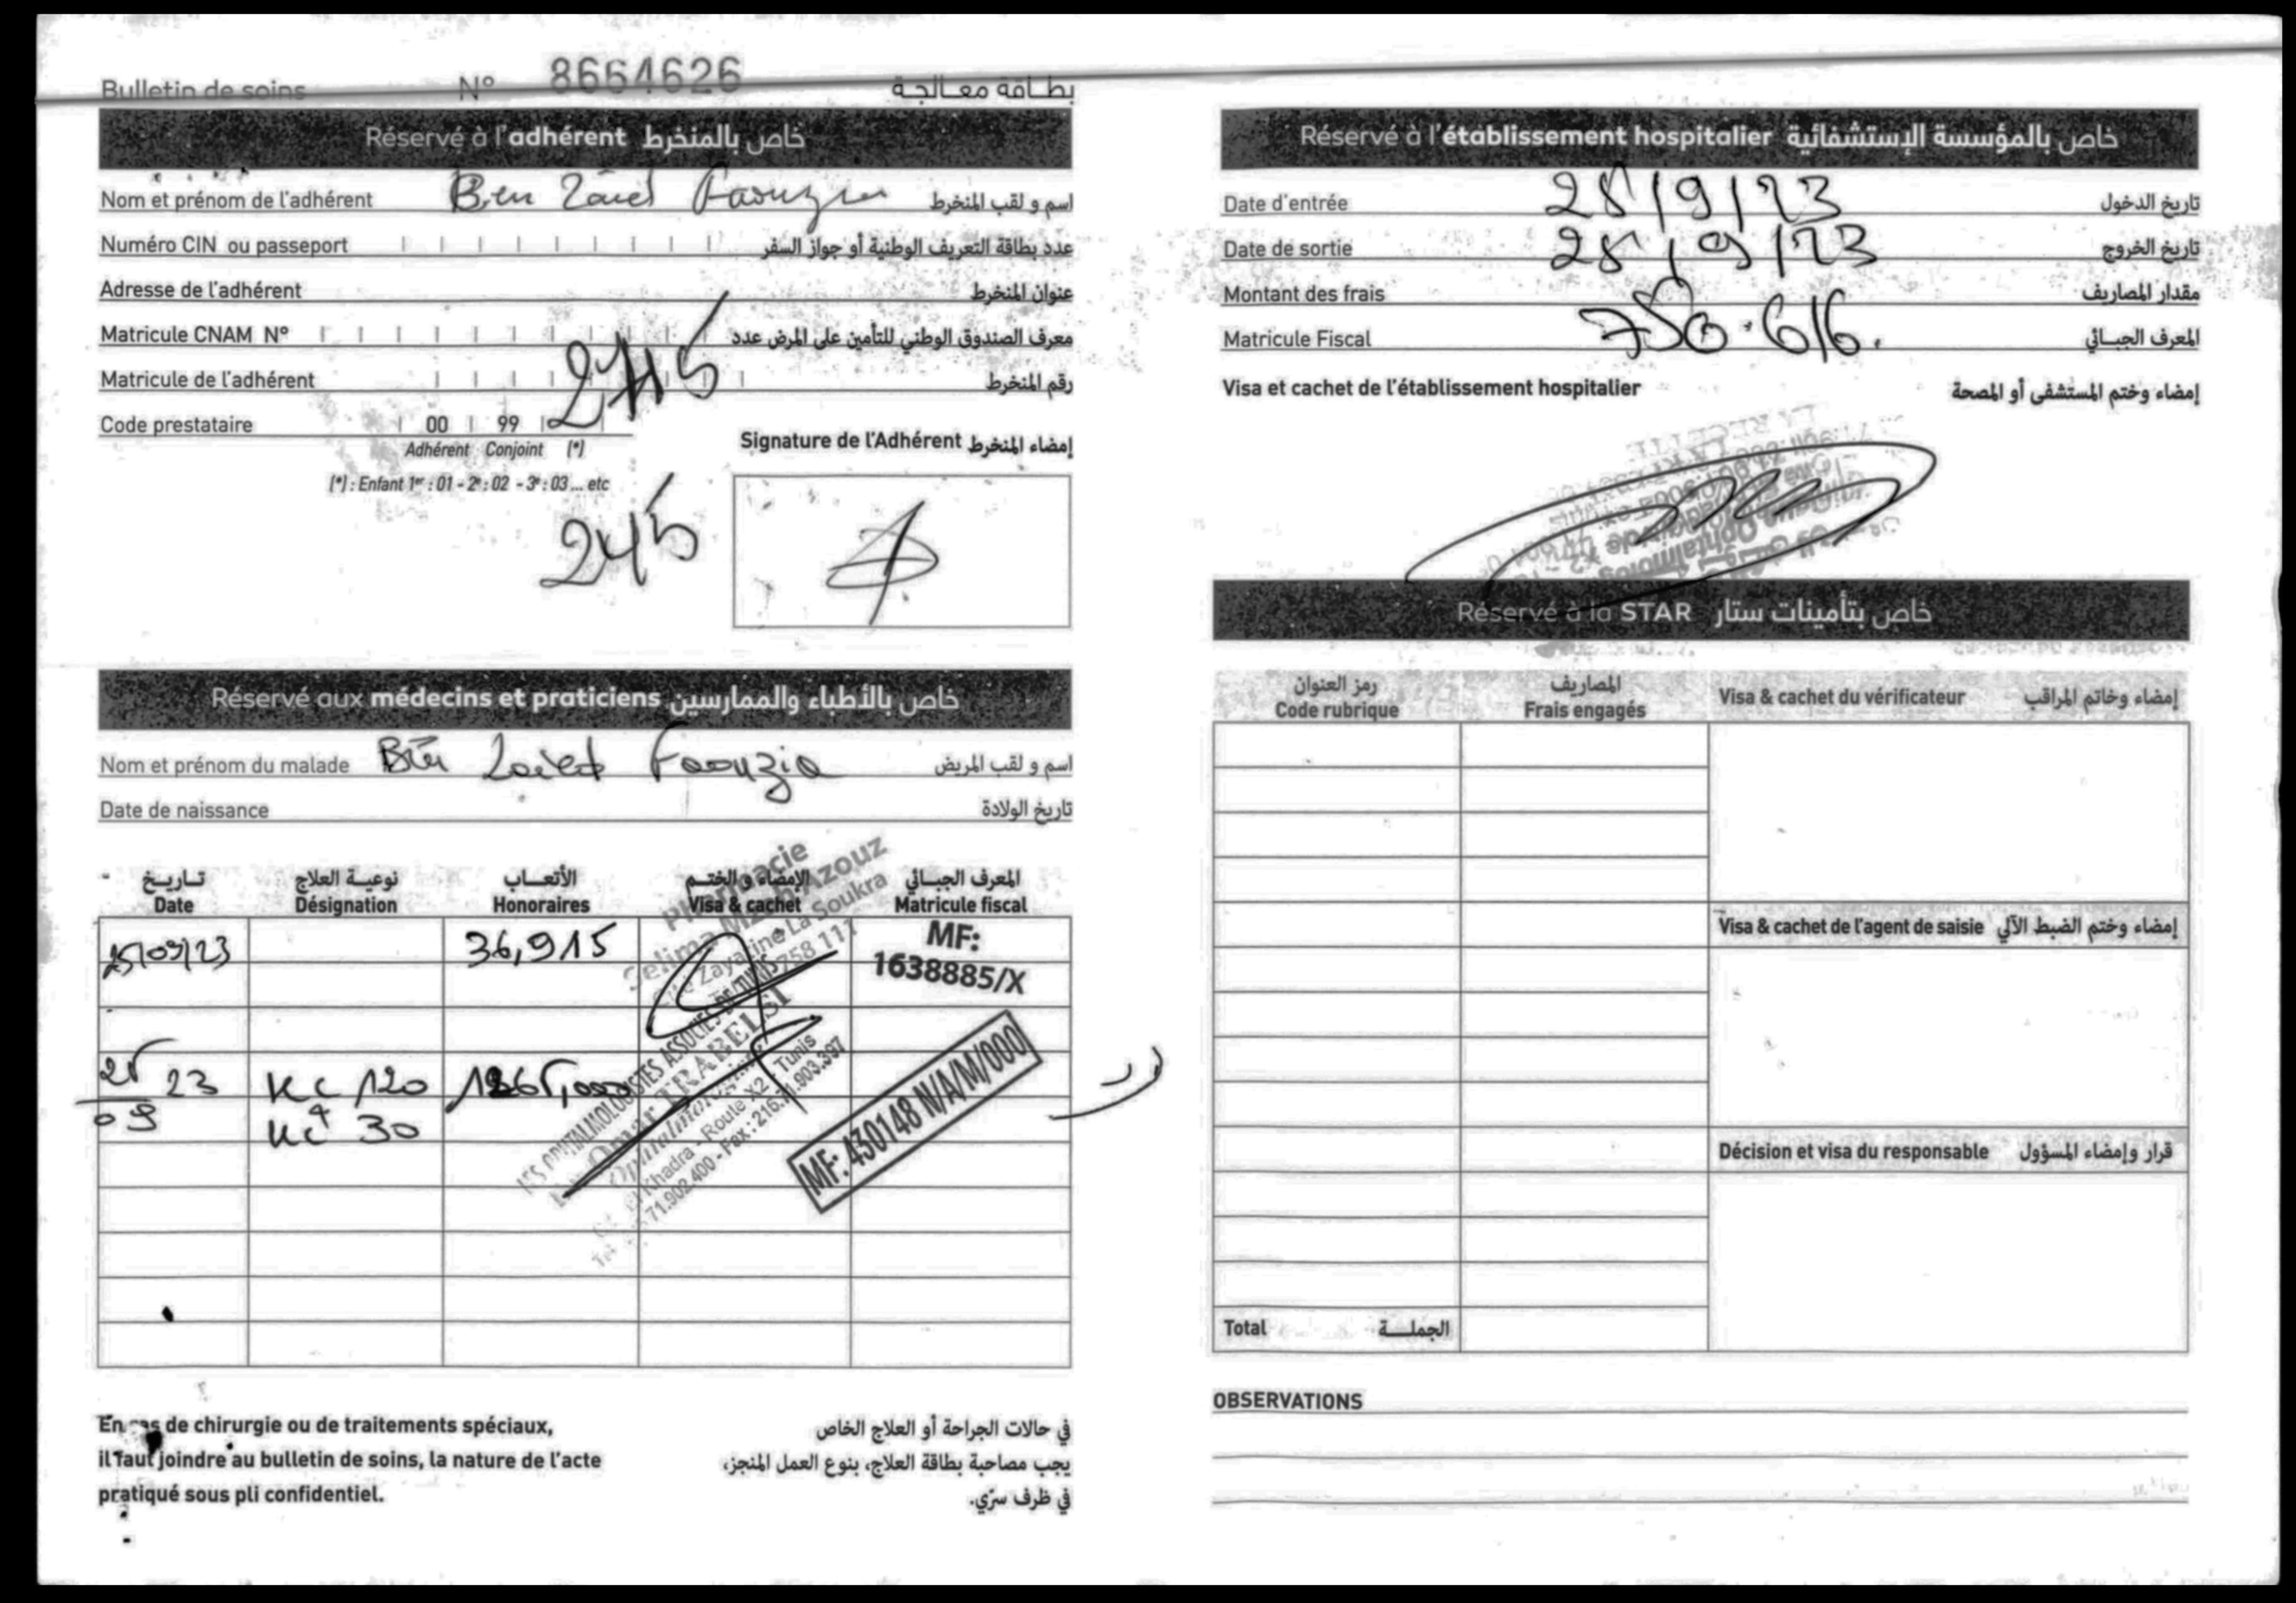 Bulletin de soins N° 8664626 بطاقة معالجة
Réservé à l'adhérent خاص بالمنخرط
Nom et prénom de l'adhérent Ben Zaied Faouzia اسم و لقب المنخرط
Numéro CIN ou passeport عدد بطاقة التعريف الوطنية أو جواز السفر
Adresse de l'adhérent عنوان المنخرط
Matricule CNAM N° معرف الصندوق الوطني للتأمين على المرض عدد
Matricule de l'adhérent رقم المنخرط
Code prestataire 00 99
Adhérent Conjoint (*)
(*) : Enfant 1er : 01 - 2e : 02 - 3e : 03 ... etc
Signature de l'Adhérent إمضاء المنخرط
Réservé aux médecins et praticiens خاص بالأطباء والممارسين
Nom et prénom du malade Ben Zaied Faouzia اسم و لقب المريض
Date de naissance تاريخ الولادة
تاريخ نوعية العلاج الأتعاب الإمضاء و الختم المعرف الجبائي
Date Désignation Honoraires Visa & cachet Matricule fiscal
25/09/23 36,915 MF: 1638885/X
Pharmacie
Selima Azouz
Zayatine La Soukra
758 111
25/09 23 KC 120
KC 30
LES OPHTALMOLOGISTES ASSOCIES DE TUNIS
Omar TRABELSI
El Khadra - Route X2 Tunis
71.902.400 - Fax : 216.71.903.397
MF: 430148 N/A/M/000
En cas de chirurgie ou de traitements spéciaux,
il faut joindre au bulletin de soins, la nature de l'acte
pratiqué sous pli confidentiel.
في حالات الجراحة أو العلاج الخاص
يجب مصاحبة بطاقة العلاج، بنوع العمل المنجز،
في ظرف سرّي.
Réservé à l'établissement hospitalier خاص بالمؤسسة الإستشفائية
Date d'entrée 25/9/23 تاريخ الدخول
Date de sortie 25/09/23 تاريخ الخروج
Montant des frais 750.616. مقدار المصاريف
Matricule Fiscal المعرف الجبائي
Visa et cachet de l'établissement hospitalier إمضاء وختم المستشفى أو المصحة
Réservé à la STAR خاص بتأمينات ستار
رمز العنوان المصاريف
Code rubrique Frais engagés Visa & cachet du vérificateur إمضاء وخاتم المراقب
Visa & cachet de l'agent de saisie إمضاء وختم الضبط الآلي
Décision et visa du responsable قرار وإمضاء المسؤول
Total الجملة
OBSERVATIONS